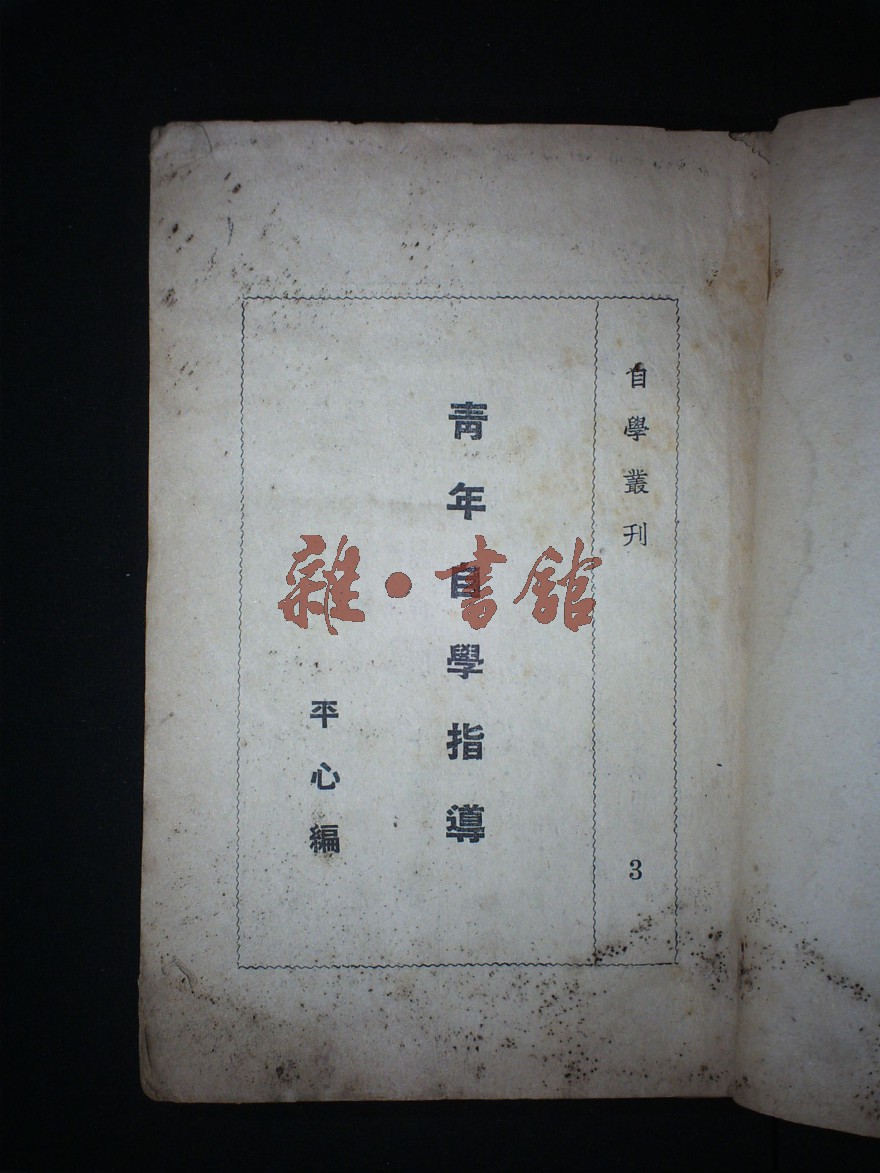 自學叢刊
3
青年自學指導
平心編
雜·書館